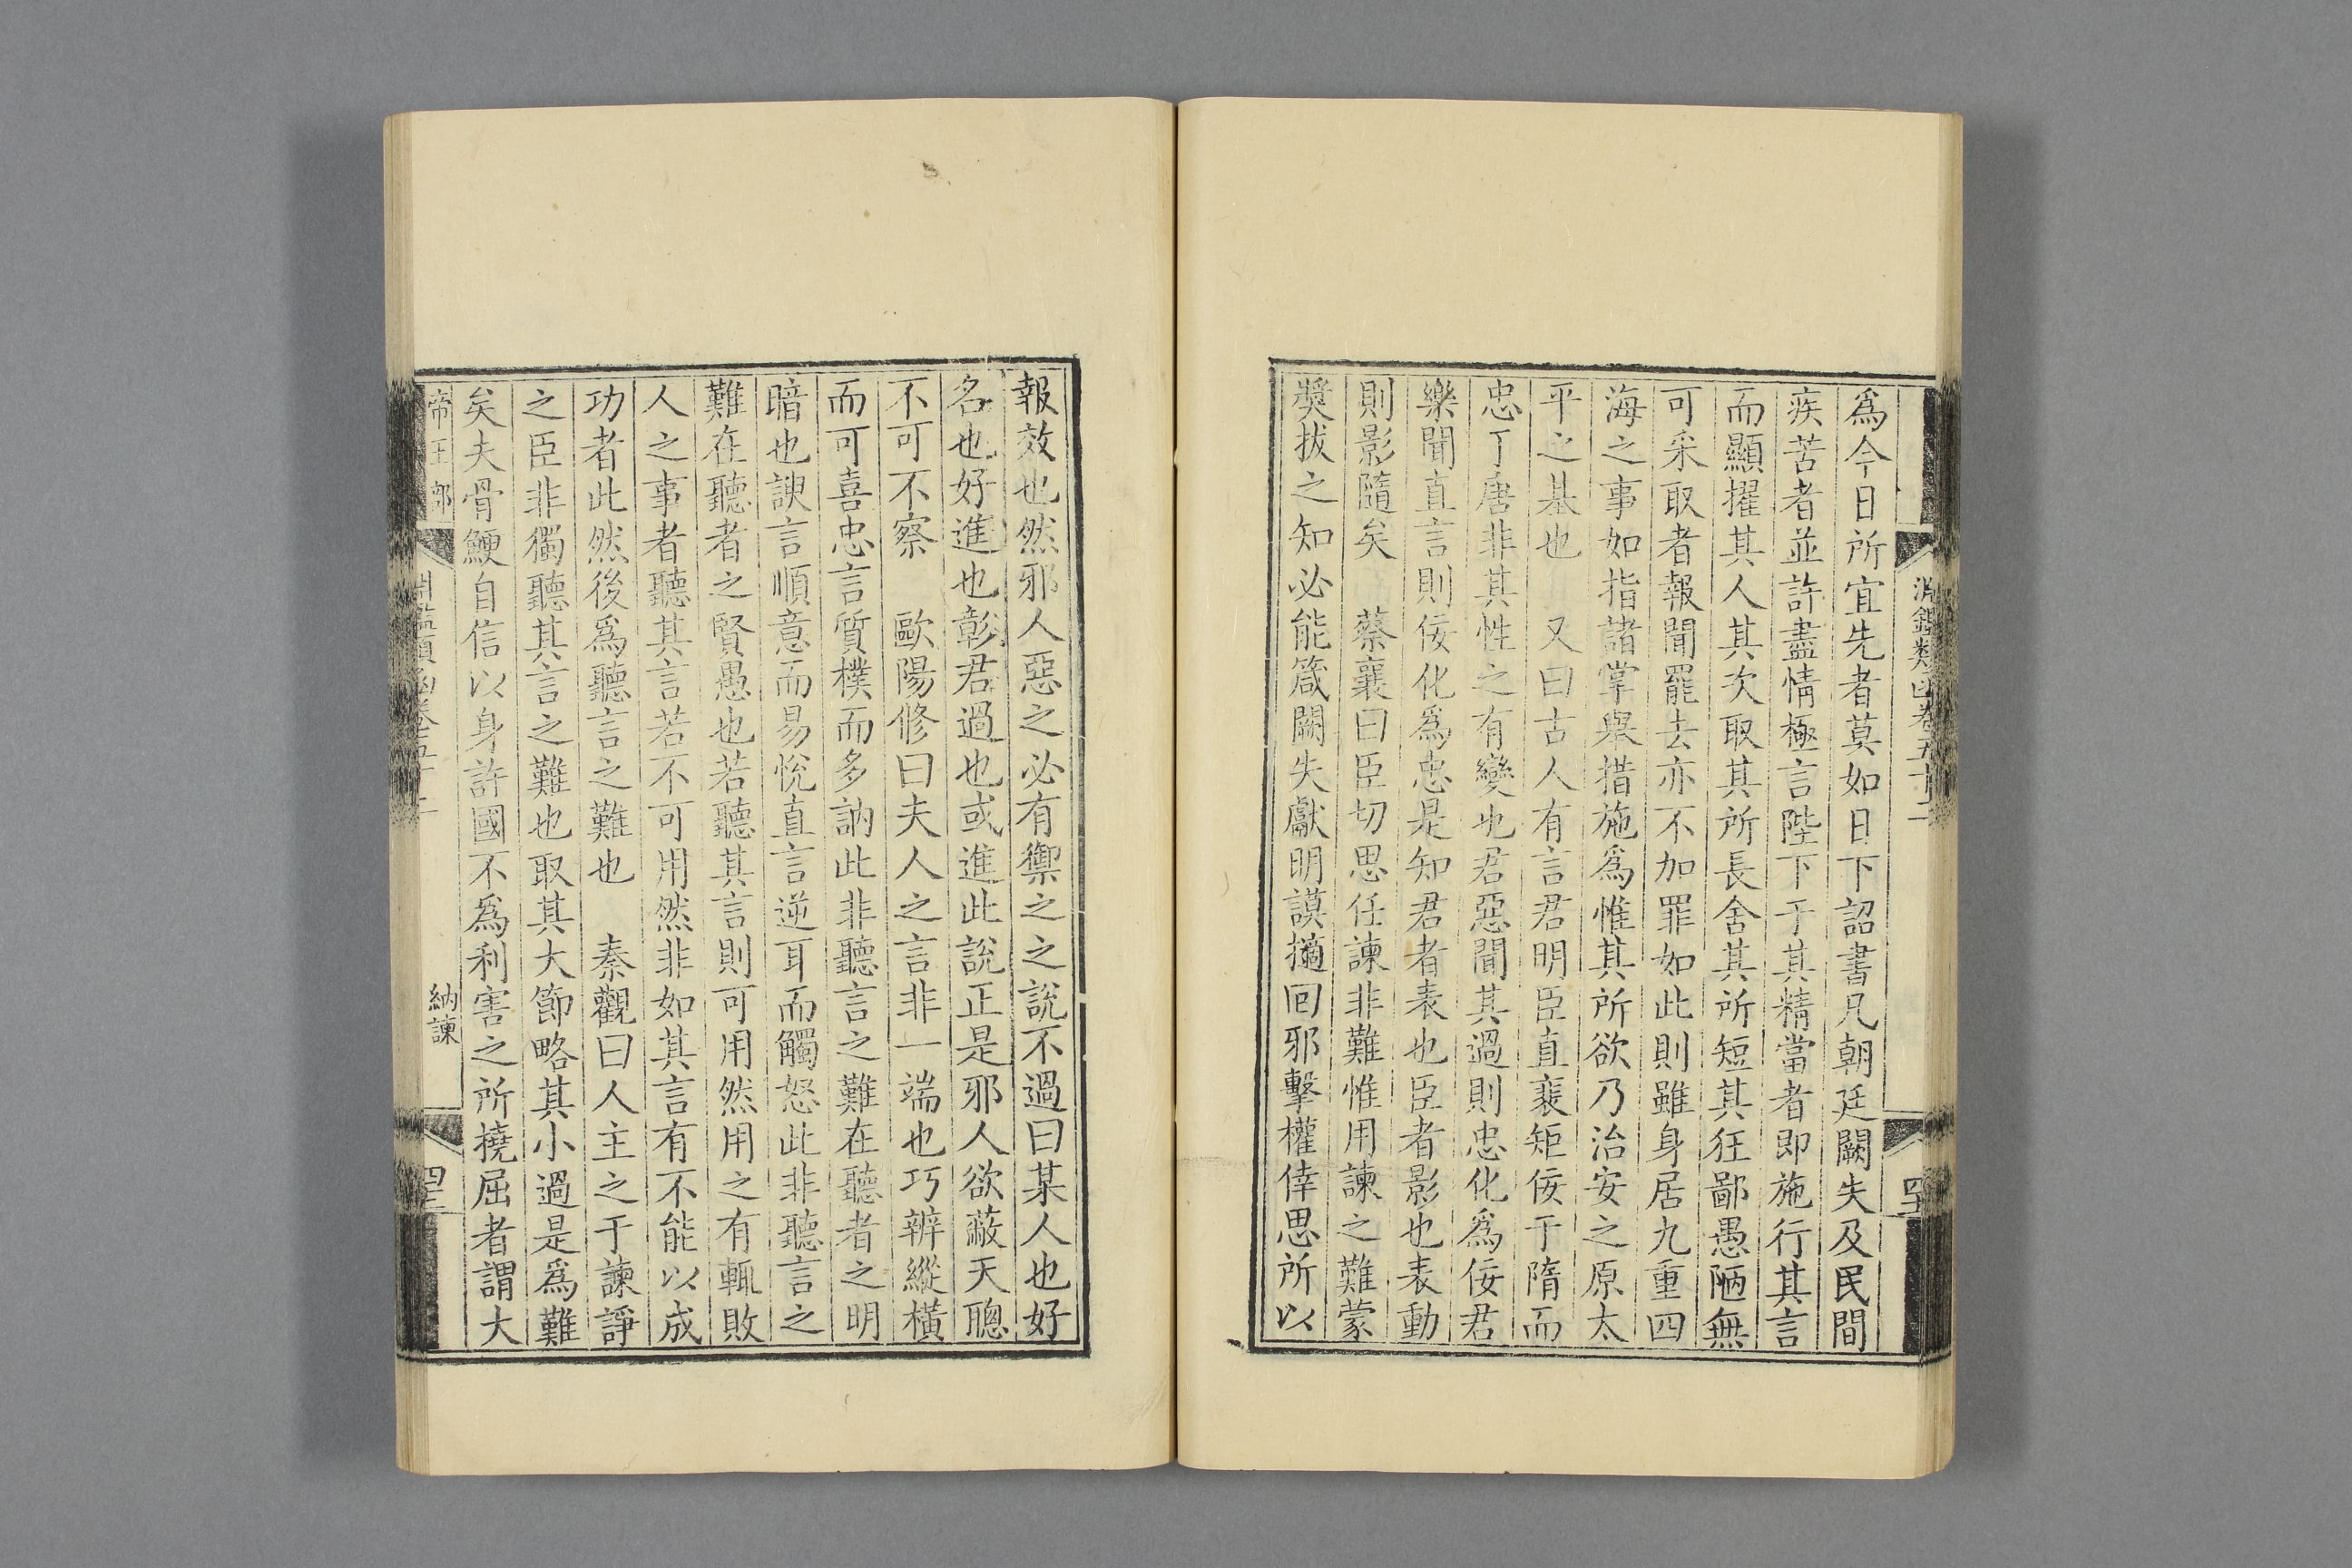 淵鑑類函卷五十二
爲今日所宜先者莫如日下詔書凡朝廷闕失及民間
疾苦者並許盡情極言陛下于其精當者即施行其言
而顯擢其人其次取其所長舍其所短其狂鄙愚陋無
可采取者報聞罷去亦不加罪如此則雖身居九重四
海之事如指諸掌舉措施爲惟其所欲乃治安之原太
平之基也　又曰古人有言君明臣直裴矩佞于隋而
忠于唐非其性之有變也君惡聞其過則忠化爲佞君
樂聞直言則佞化爲忠是知君者表也臣者影也表動
則影隨矣　蔡襄曰臣切思任諫非難惟用諫之難蒙
奬拔之知必能箴闕失獻明謨擿回邪擊權倖思所以
報效也然邪人惡之必有禦之之說不過曰某人也好
名也好進也彰君過也或進此說正是邪人欲蔽天聰
不可不察　歐陽修曰夫人之言非一端也巧辨縱橫
而可喜忠言質樸而多訥此非聽言之難在聽者之明
暗也諛言順意而易悅直言逆耳而觸怒此非聽言之
難在聽者之賢愚也若聽其言則可用然用之有輒敗
人之事者聽其言若不可用然非如其言有不能以成
功者此然後爲聽言之難也　秦觀曰人主之于諫諍
之臣非獨聽其言之難也取其大節略其小過是爲難
矣夫骨鯁自信以身許國不爲利害之所撓屈者謂大
帝王部
納諫